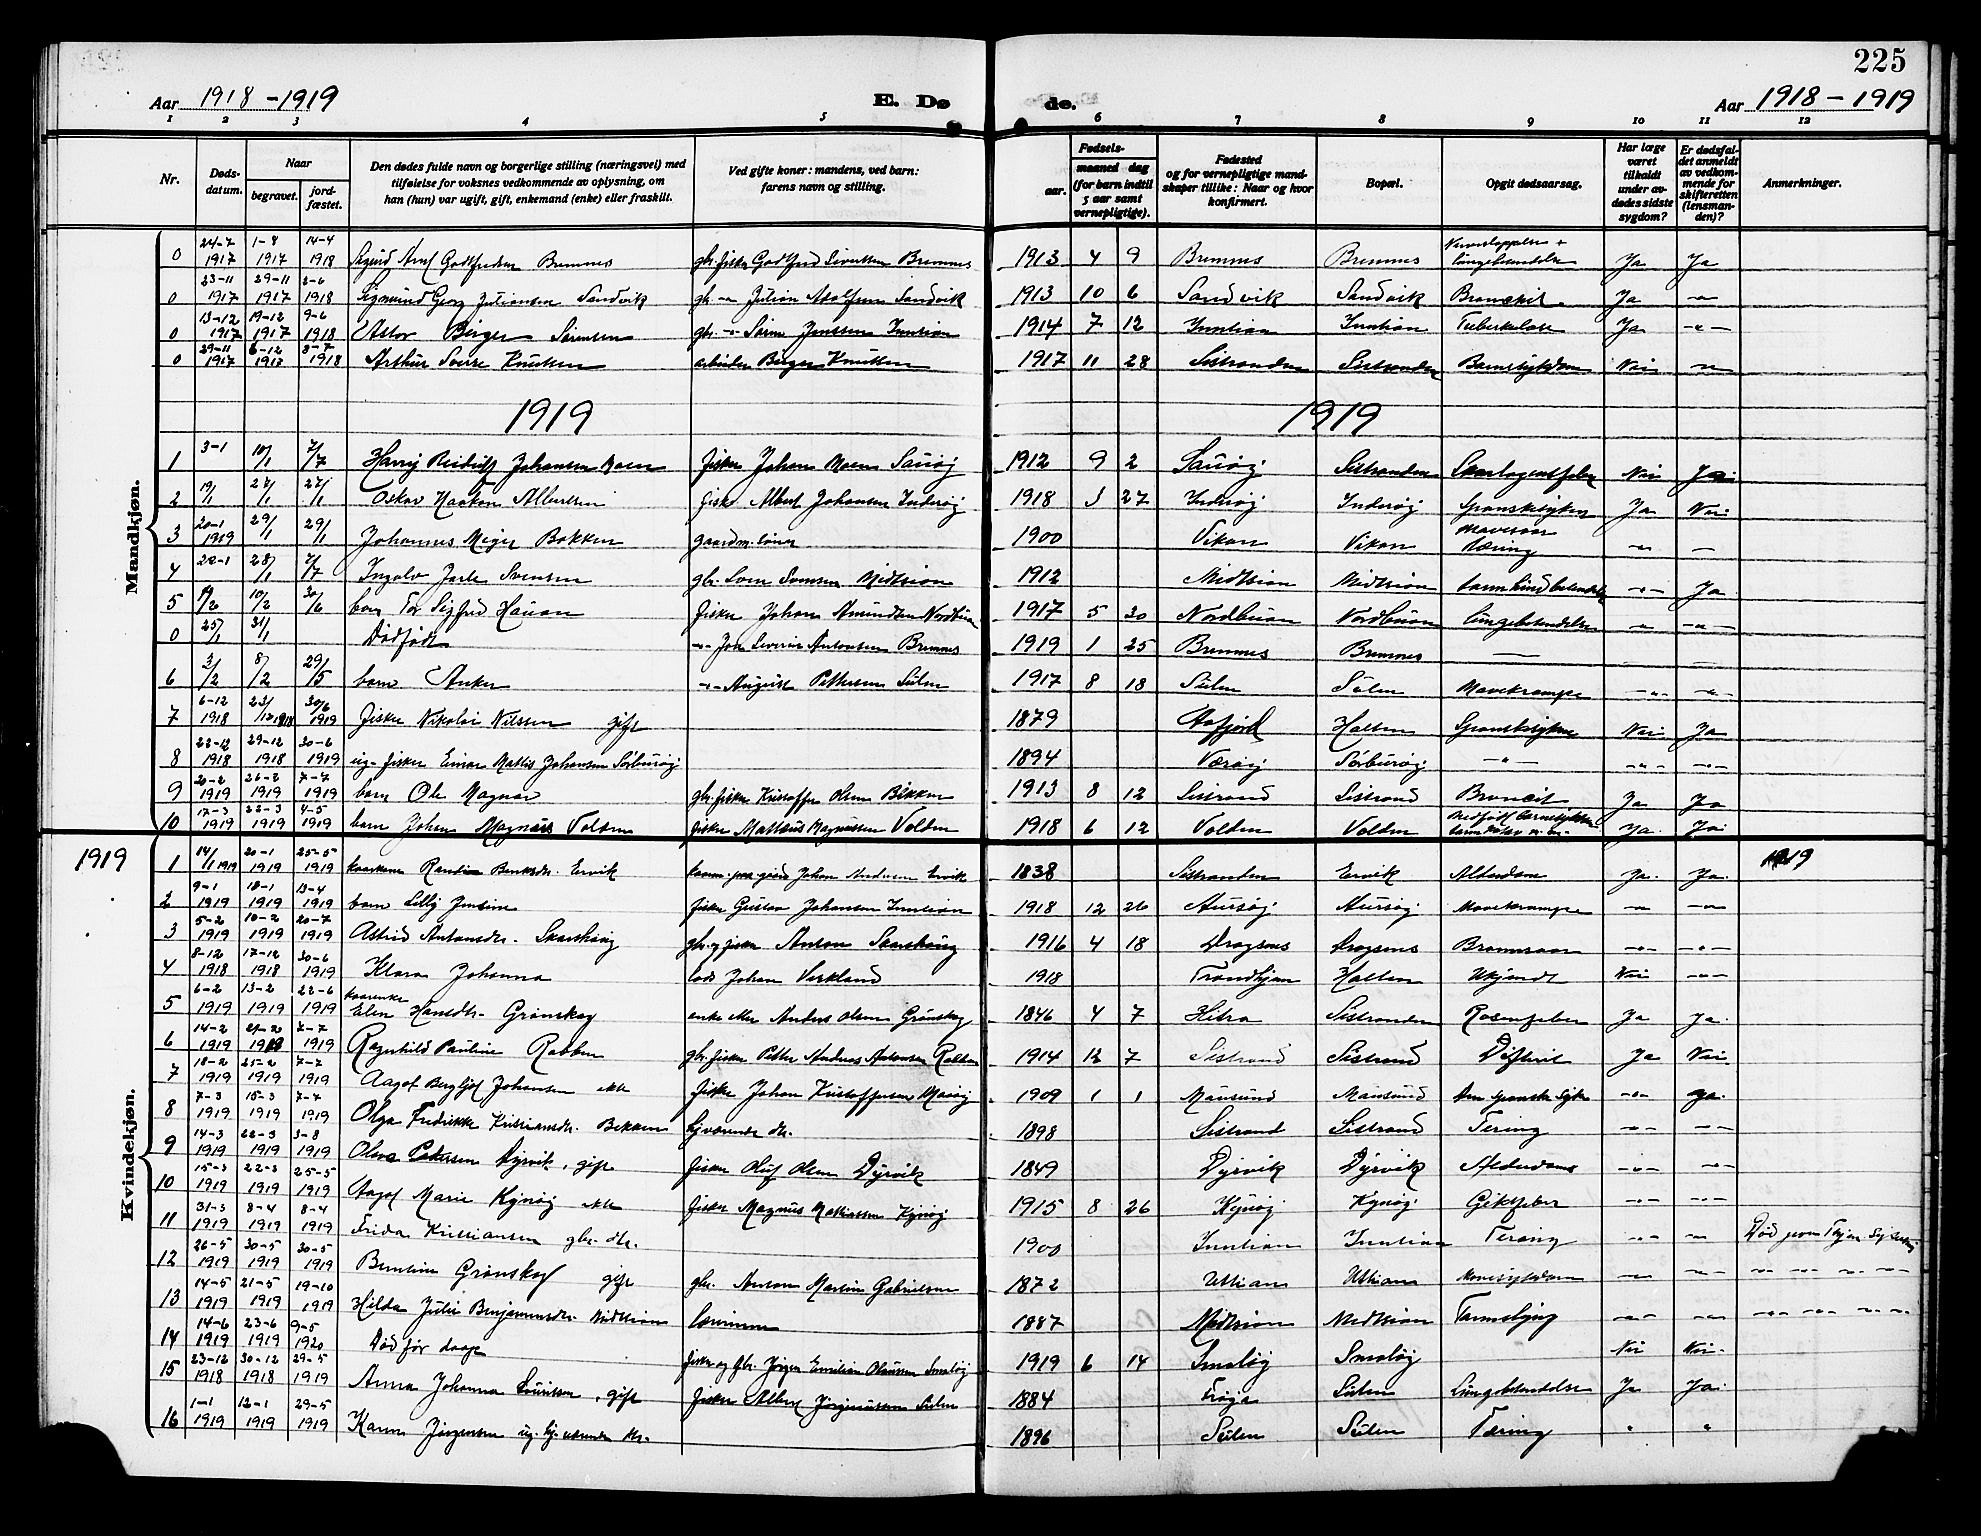 225
Aar 1918-1919 E. Dø de. Aar 1918-1919
1 2 3 4 5 6 7 8 9 10 11 12
Nr. Døds-datum. Naar begravet. jord-fæstet. Den dødes fulde navn og borgerlige stilling (næringsvei) med tilføielse for voksnes vedkommende av oplysning, om han (hun) var ugift, gift, enkemand (enke) eller fraskilt. Ved gifte koner: mandens, ved barn: farens navn og stilling. Fødsels- aar. maaned dag (for barn indtil 5 aar samt vernepligtige). Fødested og for vernepligtige mandskaper tillike: Naar og hvor konfirmert. Bopæl. Opgit dødsaarsag. Har læge været tilkaldt under avdødes sidste sygdom? Er dødsfaldet anmeldt av vedkommende for skifteretten (lensmanden)? Anmerkninger.
Mandkjøn.
0 24-7 1917 1-8 1917 14-4 1918 Sigurd Godtfredsen Bremnes gbr. fisker Godtfred Sivertsen Bremnes 1913 4 9 Bremnes Bremnes Ja Ja
0 23-11 1917 29-11 1917 2-6 1918 Sigmund Georg Juliansen Sandvik gbr. -"- Julian Adolfsen Sandvik 1913 10 6 Sandvik Sandvik Bronchit. Ja -"-
0 13-12 1917 19-12 1917 9-6 1918 Astor Birger Sørensen gbr. -"- Søren Jenssen Inntian 1914 7 12 Inntian Inntian Tuberkulose Ja -"-
0 29-11 1917 6-12 1917 1918 Arthur Sverre Knutsen arbeider Birger Knutsen 1917 11 28 Sistranden Sistranden Barnesykdom Nei -"-
1919 1919
1 3-1 10/1 7/7 Harry Johansen Moen fisker Johan Moen Sauøy 1912 9 2 Sauøy Sistranden Skarlagensfeber Nei
2 19/1 27/1 27/1 Oskar Haakon Albertsen fisker Albert Johansen Inderøy 1918 3 27 Inderøy Inderøy Spanskesyken Ja Nei
3 20-1 1919 29/1 29/1 Johannes Meyer Bakken 1900 Vikan Vikan Mavesaar Tæring -"- -
4 22-1 28/1 7/7 Ingolv Jarle Svensen gbr. Sven Svensen Midtsian 1912 Midtsian Midtsian -"- Ja
5 10/2 30/6 barn Tor Sigfred Hauan fisker Johan Amundsen Nordbuan 1917 5 30 Nordbuan Nordbuan Lungebetendelse -"- -"-
0 25/1 31/1 Dødfødt -"- Johs Severin Antonsen Bremnes 1919 1 25 Bremnes Bremnes - -"- -"-
6 3/2 8/2 29/5 barn Anker -"- August Pettersen Sulen 1917 8 18 Sulen Sulen Mavekrampe -"- -"-
7 6-12 1918 23/12 1918 30/6 1919 fisker Nikolai Nilssen gift 1879 Aafjord Halten Spanskesyken Nei Ja
8 22-12 1918 29-12 1918 30-6 1919 ug. fisker Einar Mathis Johansen Sørburøy 1894 Værøy Sørburøy -"- -"- -"-
9 20-2 1919 26-2 1919 7-7 1919 barn Ole Magnar gbr. fisker Kristoffer Olsen Bekken 1913 8 12 Sistrand Sistrand Broncit Ja Ja
10 17-3 1919 22-3 1919 4-5 1919 barn Johan Magnus Volden fisker Matteus Magnussen Volden 1918 6 12 Volden Volden Medfødt Ja. Ja
1919
Kvindekjøn.
1 14/1 1919 20-1 1919 25-5 1919 Ervik Johan Andersen Ervik 1838 Sistranden Ervik Alderdom Ja. Ja. 1919
2 9-1 1919 18-1 1919 13-4 1919 barn Lilly Jensine fisker Gustav Johansen Inntian 1918 12 26 Aursøy Aursøy Mavekrampe -"- -"-
3 5-2 1919 10-2 1919 20-7 1919 Astrid Antonsdtr. Skarshaug gbr. og fisker Anton Skarshaug 1916 4 18 Dragsnes Dragsnes -"- -"-
4 8-12 1918 17-12 1918 30-6 1919 Klara Johanna lods Johan Verkland 1918 Trondhjem Halten Ukjendt Nei -"-
5 6-2 1919 13-2 1919 22-6 1919 kaarenke Elen Hansdtr. Grønskag enke etter Anders Olsen Grønskag 1846 4 7 Hitra Sistranden Rosenfeber Ja Ja.
6 14-2 1919 1919 7-7 1919 Ragnhild Pauline Rabben gbr. fisker Petter Andreas Antonsen Rabben 1914 12 7 Sistrand Sistrand Difterit Ja Nei
7 18-2 1919 25-2 1919 7-7 1919 Aagot Bergljot Johansen fisker Johan Kristoffersen 1909 1 1 Mausund Mausund Den spanske syke -"- Ja.
8 7-3 1919 15-3 1919 7-7 1919 Olga Fredrikke Kristiansdtr. Bekken hjværende dtr. 1898 Sistrand Sistrand Tering -"- -"-
9 14-3 1919 22-3 1919 3-8 1919 Petersen Dyrvik, gift fisker Oluf Olsen Dyrvik 1849 Dyrvik Dyrvik Alderdoms -"- -"-
10 15-3 1919 22-3 1919 25-5 1919 Aagot Marie Kjynøy fisker Magnus Mathiassen Kjynøy 1915 8 26 Kjynøy Kjynøy Giktfeber -"- -"-
11 31-3 1919 8-4 1919 8-4 1919 Frida Kristiansen gbr. dtr. 1900 Inntian Inntian Tering -"- -"- Død
12 26-5 1919 30-5 1919 30-5 1919 Berntine Grønskag gift gbr. Anton Martin Gabrielsen 1872 Uttian Uttian Mavesykdom -"- -"- -"- -"- -"- -"-
13 14-5 1919 21-5 1919 19-10 1919 Hilda Julie Benjaminsdtr. Midtsian Lærerinne 1887 Midtsian Midtsian Tarmslyng -"- -"- -"- -"- -"- -"-
14 14-6 1919 23-6 1919 9-5 1920 Død før daap fisker og gbr. Jørgen Emilian Olaussen Smaløy 1919 6 14 Smaløy Smaløy Nei Nei.
15 23-12 1918 30-12 1918 29-5 1919 Anna Johanna Lauritsen, gift fisker Albert Jørginussen Sulen 1884 Frøya Sulen Lungebetendelse Ja Ja.
16 1-1 1919 12-1 1919 29-5 1919 Karen Jørgensen ug. hj.værende dtr. 1896 Sulen Sulen Tæring " "